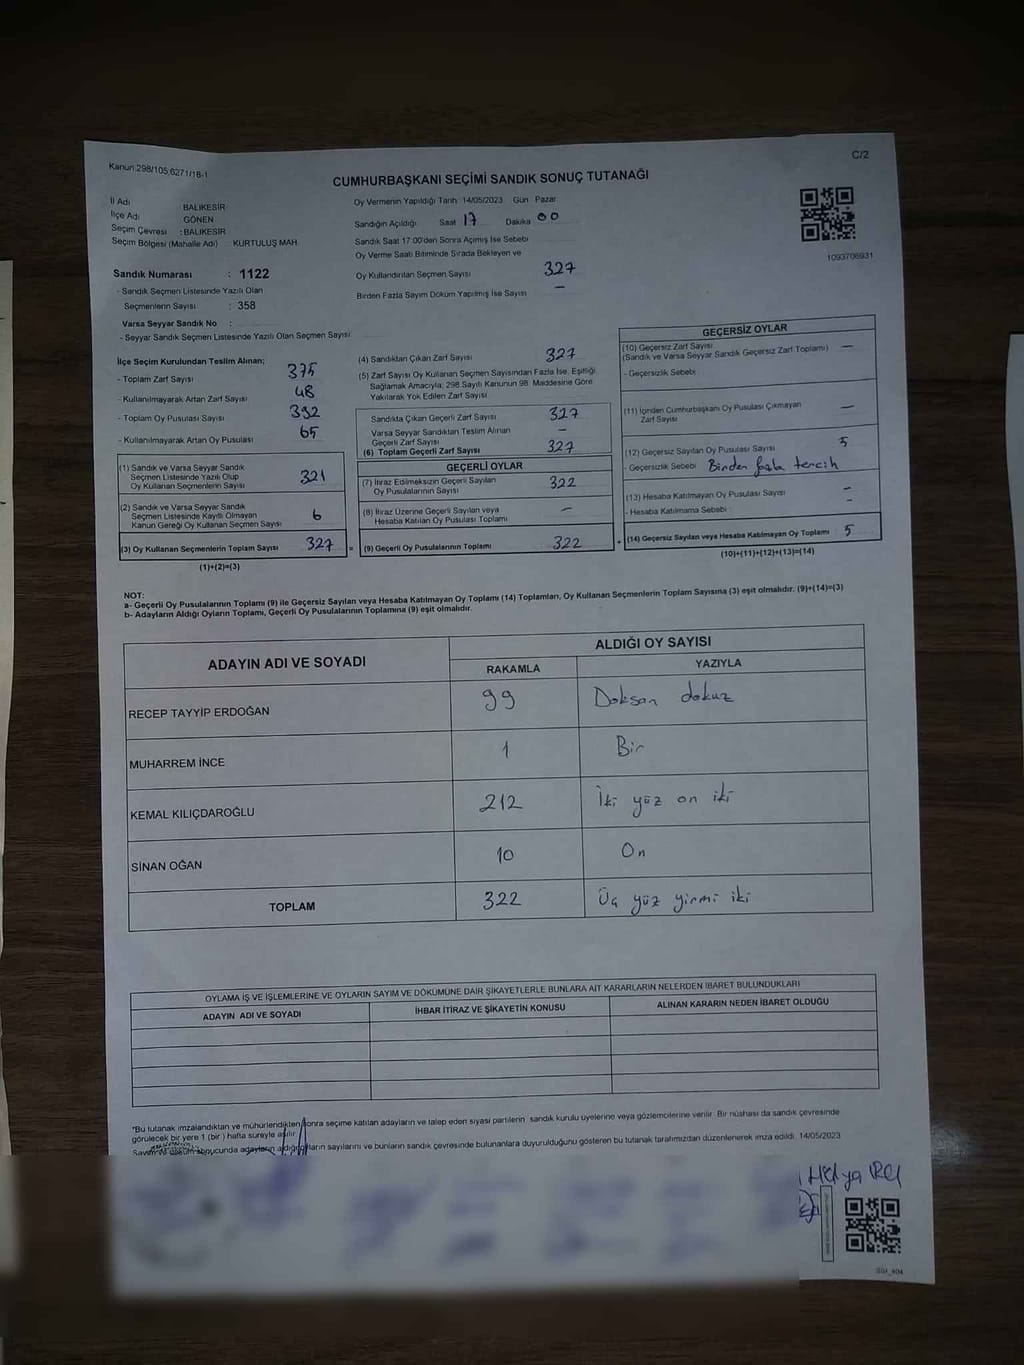 Kanun:298/105,6271/18-1
C/2
CUMHURBAŞKANI SEÇİMİ SANDIK SONUÇ TUTANAĞI
İl Adı BALIKESİR
İlçe Adı GÖNEN
Seçim Çevresi : BALIKESİR
Seçim Bölgesi (Mahalle Adı) KURTULUŞ MAH
Sandık Numarası : 1122
- Sandık Seçmen Listesinde Yazılı Olan
Seçmenlerin Sayısı : 358
Varsa Seyyar Sandık No :
- Seyyar Sandık Seçmen Listesinde Yazılı Olan Seçmen Sayısı:
Oy Vermenin Yapıldığı Tarih 14/05/2023 Gün Pazar
Sandığın Açıldığı Saat 17 Dakika 00
Sandık Saat 17:00'den Sonra Açımış İse Sebebi
Oy Verme Saati Bitiminde Sırada Bekleyen ve
Oy Kullandırılan Seçmen Sayısı 327
Birden Fazla Sayım Döküm Yapılmış İse Sayısı –
1093706931
İlçe Seçim Kurulundan Teslim Alınan;
- Toplam Zarf Sayısı 375
- Kullanılmayarak Artan Zarf Sayısı 48
- Toplam Oy Pusulası Sayısı 392
- Kullanılmayarak Artan Oy Pusulası 65
(1) Sandık ve Varsa Seyyar Sandık
Seçmen Listesinde Yazılı Olup
Oy Kullanan Seçmenlerin Sayısı 321
(2) Sandık ve Varsa Seyyar Sandık
Seçmen Listesinde Kayıtlı Olmayan
Kanun Gereği Oy Kullanan Seçmen Sayısı 6
(3) Oy Kullanan Seçmenlerin Toplam Sayısı 327 =
(1)+(2)=(3)
(4) Sandıktan Çıkan Zarf Sayısı 327
(5) Zarf Sayısı Oy Kullanan Seçmen Sayısından Fazla İse, Eşitliği
Sağlamak Amacıyla; 298 Sayılı Kanunun 98. Maddesine Göre
Yakılarak Yok Edilen Zarf Sayısı
Sandıkta Çıkan Geçerli Zarf Sayısı 327
Varsa Seyyar Sandıktan Teslim Alınan
Geçerli Zarf Sayısı –
(6) Toplam Geçerli Zarf Sayısı 327
GEÇERLİ OYLAR
(7) İtiraz Edilmeksizin Geçerli Sayılan
Oy Pusulalarının Sayısı 322
(8) İtiraz Üzerine Geçerli Sayılan veya
Hesaba Katılan Oy Pusulası Toplamı –
(9) Geçerli Oy Pusulalarının Toplamı 322 +
GEÇERSİZ OYLAR
(10) Geçersiz Zarf Sayısı –
(Sandık ve Varsa Seyyar Sandık Geçersiz Zarf Toplamı)
- Geçersizlik Sebebi
(11) İçinden Cumhurbaşkanı Oy Pusulası Çıkmayan
Zarf Sayısı –
(12) Geçersiz Sayılan Oy Pusulası Sayısı 5
- Geçersizlik Sebebi Birden fazla tercih
(13) Hesaba Katılmayan Oy Pusulası Sayısı –
- Hesaba Katılmama Sebebi –
(14) Geçersiz Sayılan veya Hesaba Katılmayan Oy Toplamı 5
(10)+(11)+(12)+(13)=(14)
NOT:
a- Geçerli Oy Pusulalarının Toplamı (9) ile Geçersiz Sayılan veya Hesaba Katılmayan Oy Toplamı (14) Toplamları, Oy Kullanan Seçmenlerin Toplam Sayısına (3) eşit olmalıdır. (9)+(14)=(3)
b- Adayların Aldığı Oyların Toplamı, Geçerli Oy Pusulalarının Toplamına (9) eşit olmalıdır.
ADAYIN ADI VE SOYADI ALDIĞI OY SAYISI
RAKAMLA YAZIYLA
RECEP TAYYİP ERDOĞAN 99 Doksan dokuz
MUHARREM İNCE 1 Bir
KEMAL KILIÇDAROĞLU 212 İki yüz on iki
SİNAN OĞAN 10 On
TOPLAM 322 Üç yüz yirmi iki
OYLAMA İŞ VE İŞLEMLERİNE VE OYLARIN SAYIM VE DÖKÜMÜNE DAİR ŞİKAYETLERLE BUNLARA AİT KARARLARIN NELERDEN İBARET BULUNDUKLARI
ADAYIN ADI VE SOYADI İHBAR İTİRAZ VE ŞİKAYETİN KONUSU ALINAN KARARIN NEDEN İBARET OLDUĞU
*Bu tutanak imzalandıktan ve mühürlendikten sonra seçime katılan adayların ve talep eden siyasi partilerin sandık kurulu üyelerine veya gözlemcilerine verilir. Bir nüshası da sandık çevresinde
görülecek bir yere 1 (bir) hafta süreyle asılır.
sayılarını ve bunların sandık çevresinde bulunanlara duyurulduğunu gösteren bu tutanak tarafımızdan düzenlenerek imza edildi. 14/05/2023